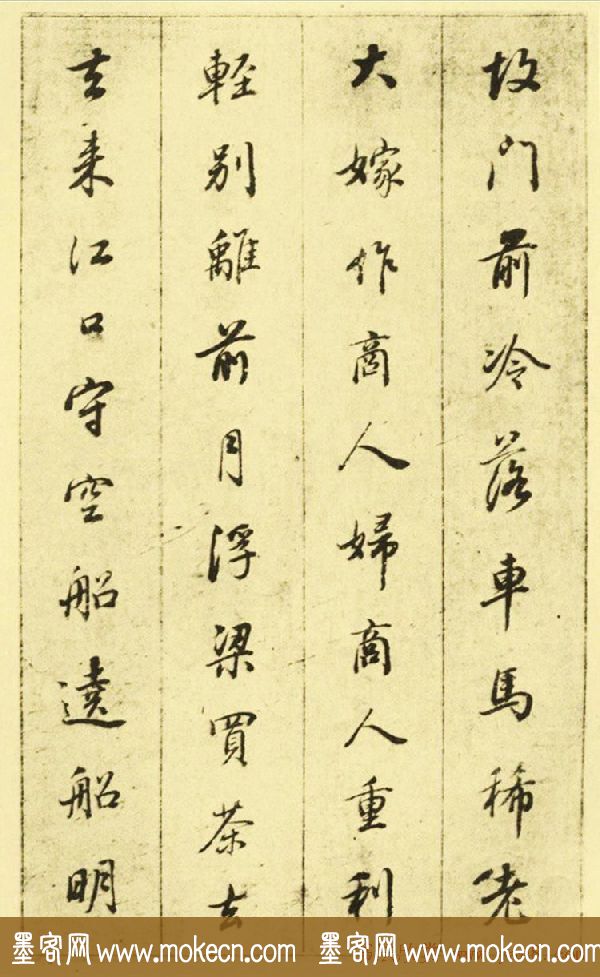 故門前冷落車馬稀老
大嫁作商人婦商人重利
輕別離前月浮梁買茶去
去来江口守空船遶船明
墨客网 www.mokecn.com 墨客网 www.mokecn.com